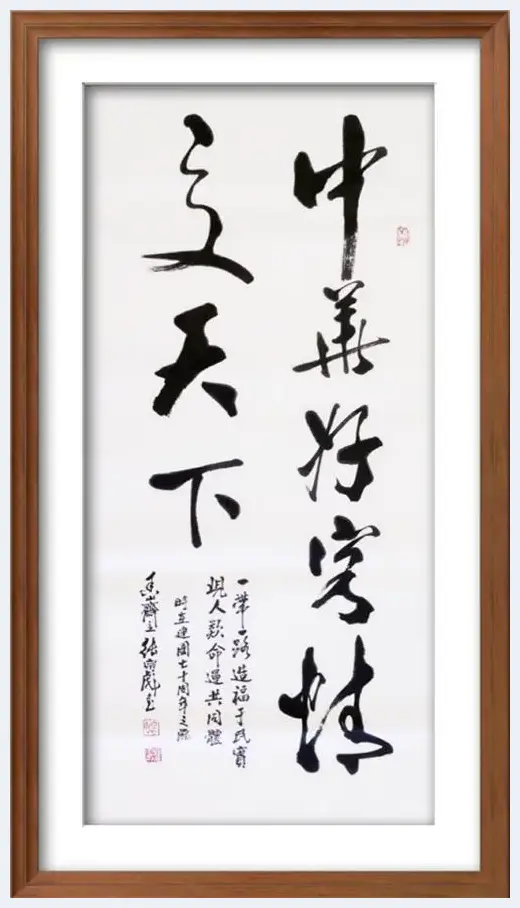 中華好客情
交天下
一帶一路造福于民實
現人類命運共同體
時在建國七十周年之際
齋主張彪